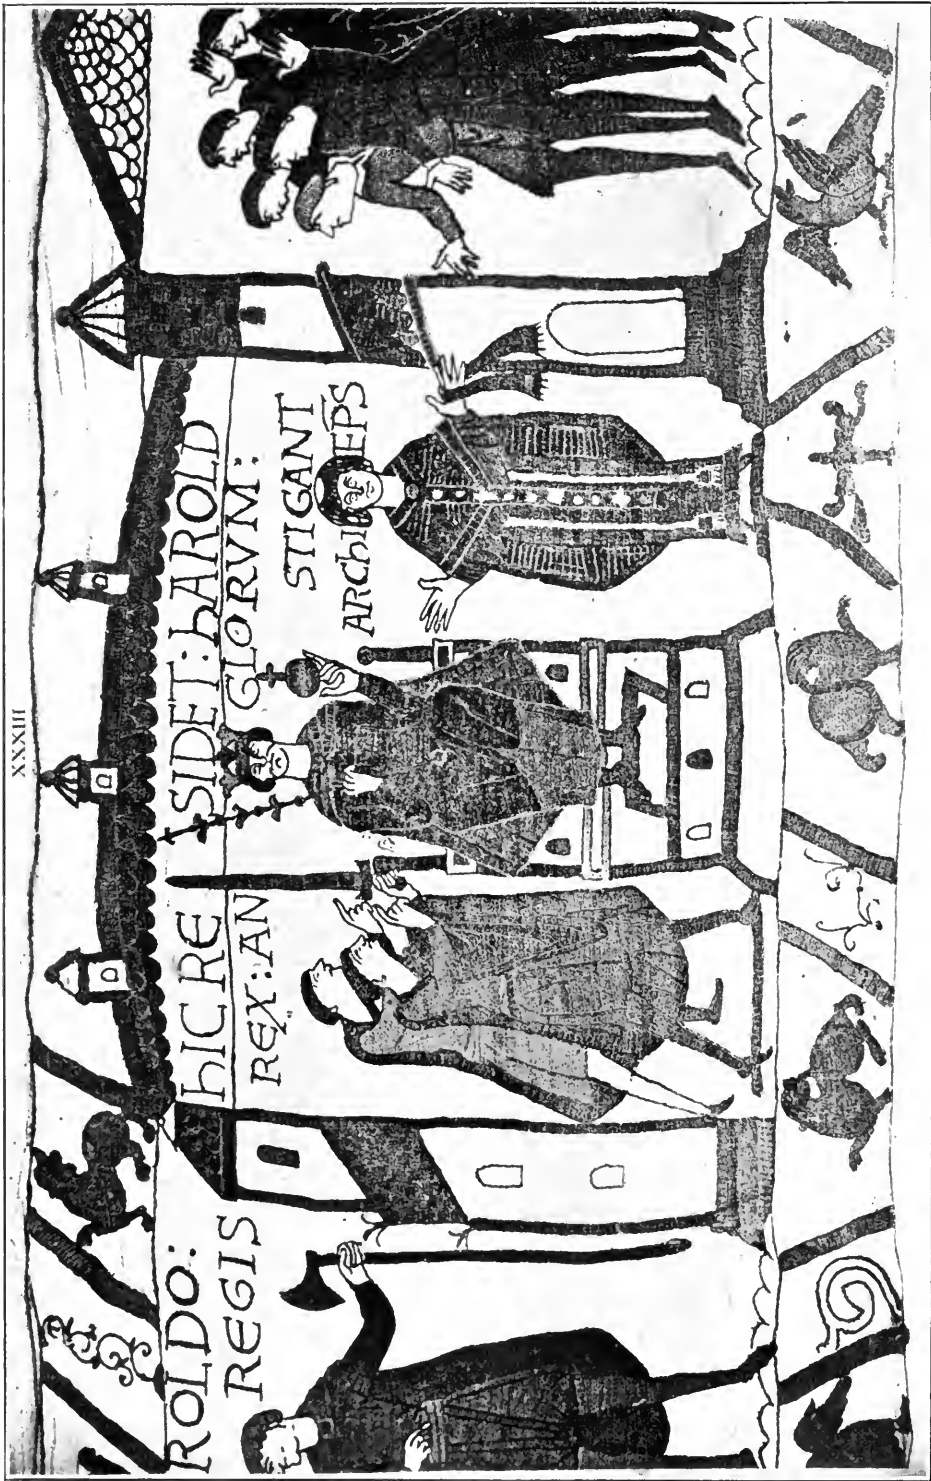 XXXIII
ROLDO:
REGIS
hIC RE SIDET: hAROLD
REX: AN GLORVM:
STIGANT
ARChI EP̄S